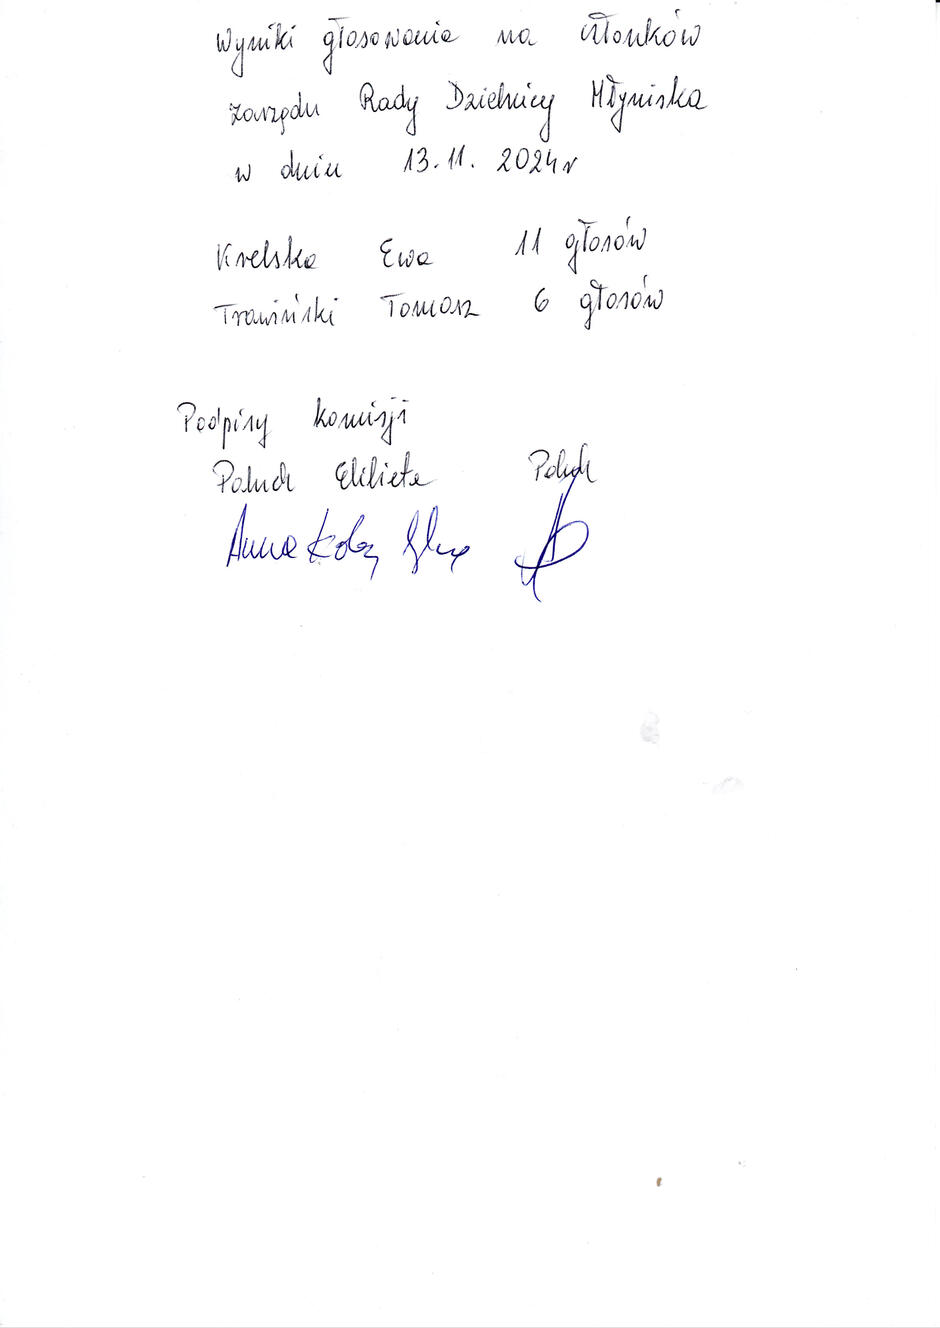 Wyniki głosowania na członków
zarządu Rady Dzielnicy Młyniska
w dniu 13.11.2024 r
Krelska Ewa 11 głosów
Trawiński Tomasz 6 głosów
Podpisy komisji
Paluch Elżbieta Paluch
Anna